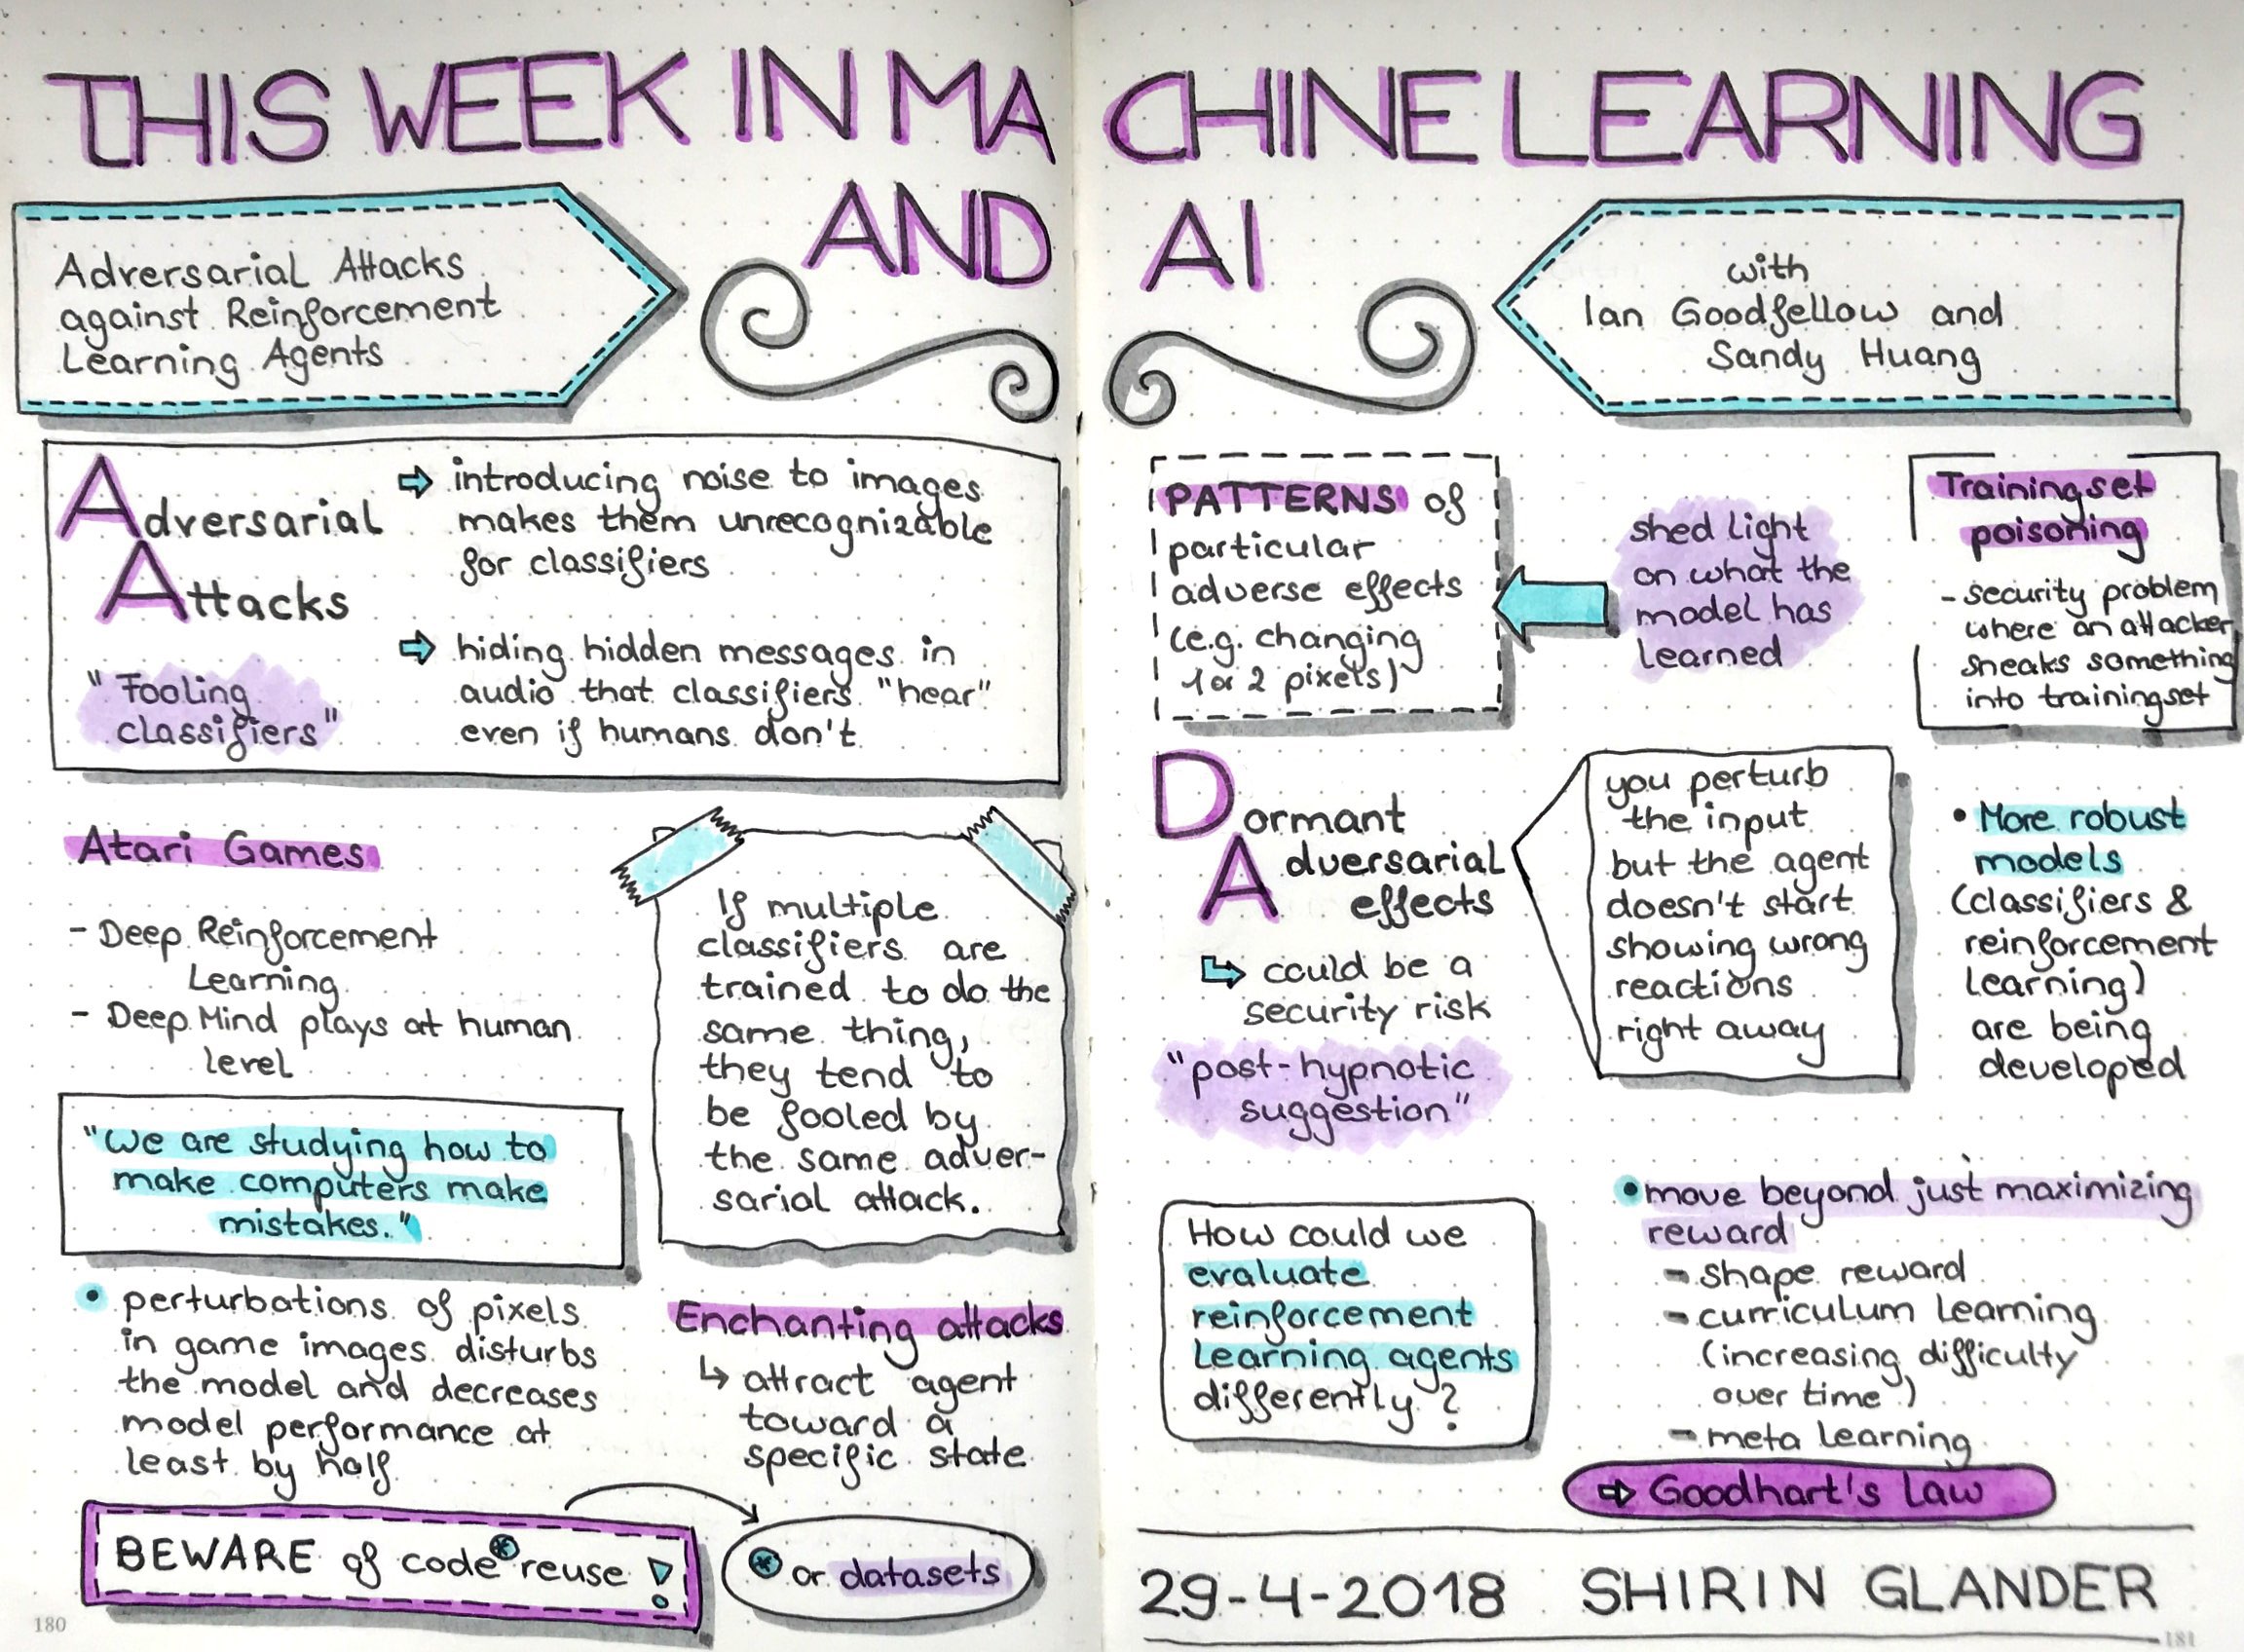 THIS WEEK IN MACHINE LEARNING
AND AI
Adversarial Attacks
against Reinforcement
Learning Agents
with
Ian Goodfellow and
Sandy Huang
Adversarial
Attacks
"Fooling
classifiers"
introducing noise to images
makes them unrecognizable
for classifiers
hiding hidden messages in
audio that classifiers "hear"
even if humans don't
Atari Games
- Deep Reinforcement
Learning
- Deep Mind plays at human
level
"We are studying how to
make computers make
mistakes."
• perturbations of pixels
in game images disturbs
the model and decreases
model performance at
least by half
If multiple
classifiers are
trained to do the
same thing,
they tend to
be fooled by
the same adver-
sarial attack.
Enchanting attacks
↳ attract agent
toward a
specific state
BEWARE of code* reuse!
* or datasets
180
PATTERNS of
particular
adverse effects
(e.g. changing
1 or 2 pixels)
shed light
on what the
model has
learned
Trainingset
poisoning
- security problem
where an attacker
sneaks something
into trainingset
Dormant
Adversarial
effects
could be a
security risk
"post-hypnotic
suggestion"
you perturb
the input
but the agent
doesn't start
showing wrong
reactions
right away
• More robust
models
(classifiers &
reinforcement
learning)
are being
developed
How could we
evaluate
reinforcement
learning agents
differently?
• move beyond just maximizing
reward
- shape reward
- curriculum learning
(increasing difficulty
over time)
- meta learning
⇨ Goodhart's Law
29-4-2018 SHIRIN GLANDER
181